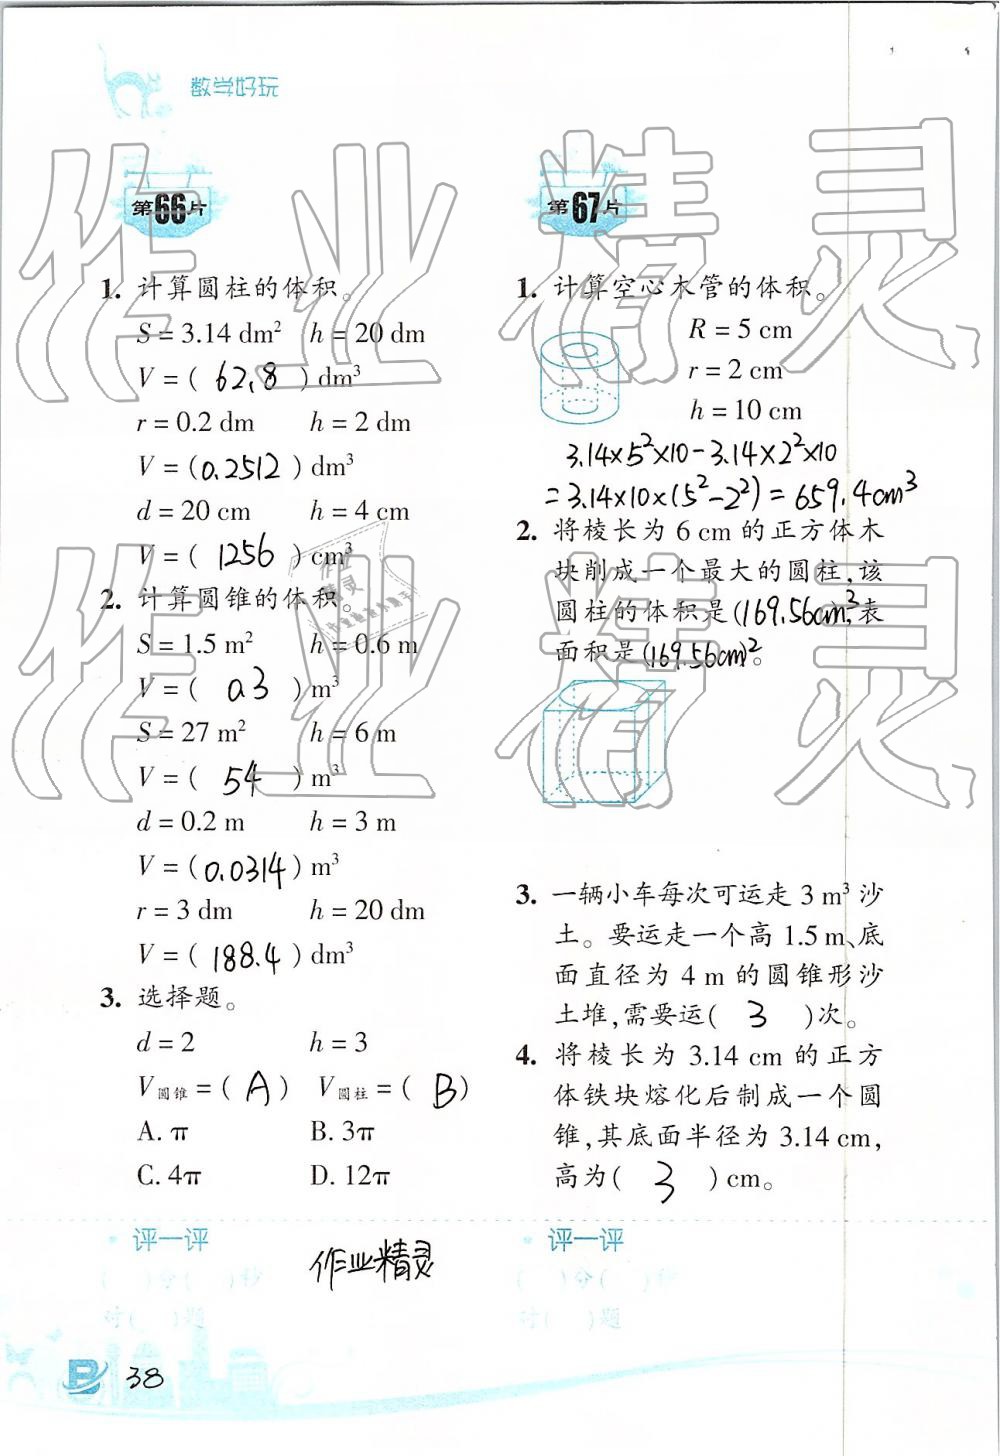 数学好玩
第66片
1. 计算圆柱的体积。
S = 3.14 dm² h = 20 dm
V = ( 62.8 ) dm³
r = 0.2 dm h = 2 dm
V = ( 0.2512 ) dm³
d = 20 cm h = 4 cm
V = ( 1256 ) cm³
2. 计算圆锥的体积。
S = 1.5 m² h = 0.6 m
V = ( 0.3 ) m³
S = 27 m² h = 6 m
V = ( 54 ) m³
d = 0.2 m h = 3 m
V = ( 0.0314 ) m³
r = 3 dm h = 20 dm
V = ( 188.4 ) dm³
3. 选择题。
d = 2 h = 3
V圆锥 = ( A ) V圆柱 = ( B )
A. π B. 3π
C. 4π D. 12π
评一评
( )分( )秒
对( )题
作业精灵
38
第67片
1. 计算空心木管的体积。
R = 5 cm
r = 2 cm
h = 10 cm
3.14×5²×10-3.14×2²×10
=3.14×10×(5²-2²)=659.4cm³
2. 将棱长为 6 cm 的正方体木
块削成一个最大的圆柱,该
圆柱的体积是(169.56cm³),表
面积是(169.56cm²)。
3. 一辆小车每次可运走 3 m³ 沙
土。要运走一个高 1.5 m、底
面直径为 4 m 的圆锥形沙
土堆,需要运( 3 )次。
4. 将棱长为 3.14 cm 的正方
体铁块熔化后制成一个圆
锥,其底面半径为 3.14 cm,
高为( 3 ) cm。
评一评
( )分( )秒
对( )题
作业精灵
作业精灵